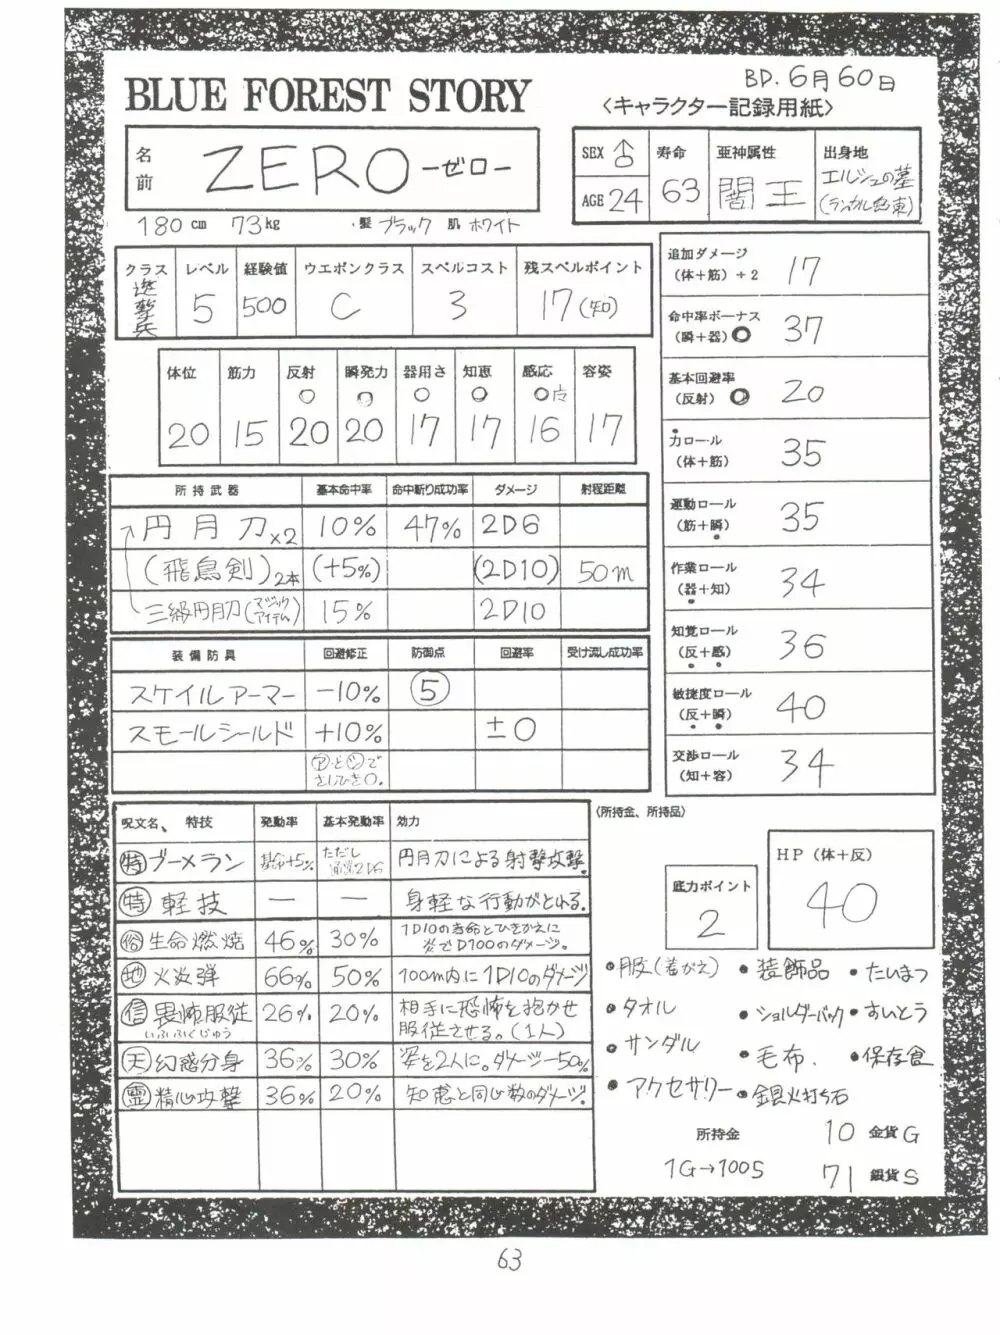 BD. 6月60日
BLUE FOREST STORY
〈キャラクター記録用紙〉
名前 ZERO -ゼロ-
SEX ♂ AGE 24
寿命 63
亜神属性 闇王
出身地 エルシュの墓
180 cm 73 kg ・髪 ブラック 肌 ホワイト
クラス 遊撃兵
レベル 5
経験値 500
ウエポンクラス C
スペルコスト 3
残スペルポイント 17(知)
体位 筋力 反射 瞬発力 器用さ 知恵 感応 容姿
20 15 20 20 17 17 16 17
追加ダメージ (体+筋)÷2 17
命中率ボーナス (瞬+器) 37
基本回避率 (反射) 20
力ロール (体+筋) 35
運動ロール (筋+瞬) 35
作業ロール (器+知) 34
知覚ロール (反+感) 36
敏捷度ロール (反+瞬) 40
交渉ロール (知+容) 34
所持武器 基本命中率 命中斬り成功率 ダメージ 射程距離
円月刀×2 10% 47% 2D6
(飛鳥剣)2本 (+5%) (2D10) 50m
三級円月刀(マジックアイテム) 15% 2D10
装備防具 回避修正 防御点 回避率 受け流し成功率
スケイルアーマー -10% ⑤
スモールシールド +10% ±0
㋐と㋛でさしひき0.
呪文名、特技 発動率 基本発動率 効力
㊕ブーメラン 基命+5% ただし通常2D6 円月刀による射撃攻撃.
㊕軽技 — — 身軽な行動がとれる.
俗 生命燃焼 46% 30% 1D10の寿命とひきかえに炎でD100のダメージ。
地 火炎弾 66% 50% 100m内に1D10のダメージ
信 畏怖服従 いふふくじゅう 26% 20% 相手に恐怖を抱かせ服従させる。(1人)
天 幻惑分身 36% 30% 姿を2人に。ダメージ-50%
霊 精心攻撃 36% 20% 知恵と同じ数のダメージ.
(所持金、所持品)
底力ポイント 2
HP(体+反) 40
•服(着がえ) •装飾品 •たいまつ
•タオル •ショルダーバック •すいとう
•サンダル •毛布. •保存食
•アクセサリー •銀火打ち石
所持金 10 金貨G
1G→100S 71 銀貨S
63